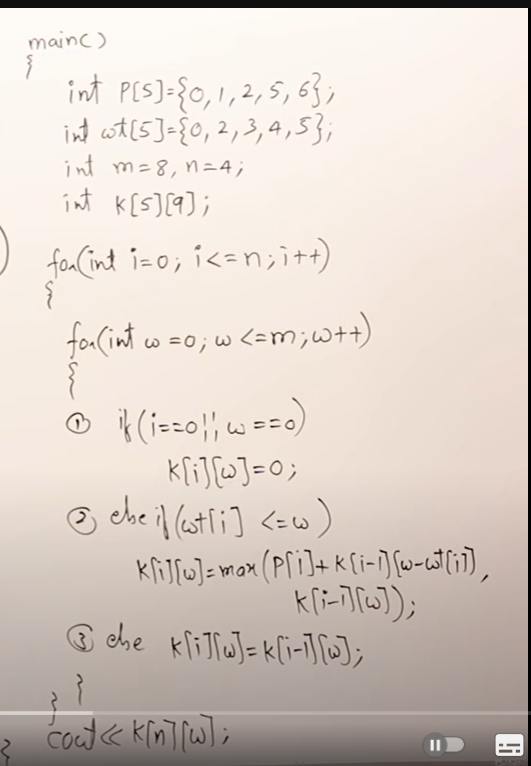 main()
{
int P[5]={0,1,2,5,6};
int wt[5]={0,2,3,4,5};
int m=8, n=4;
int k[5][9];
for(int i=0; i<=n; i++)
{
for(int w=0; w<=m; w++)
{
① if(i==0||w==0)
k[i][w]=0;
② else if(wt[i] <=w)
k[i][w]=max(P[i]+k[i-1][w-wt[i]],
k[i-1][w]);
③ else k[i][w]=k[i-1][w];
}
}
cout<< k[n][w];
}